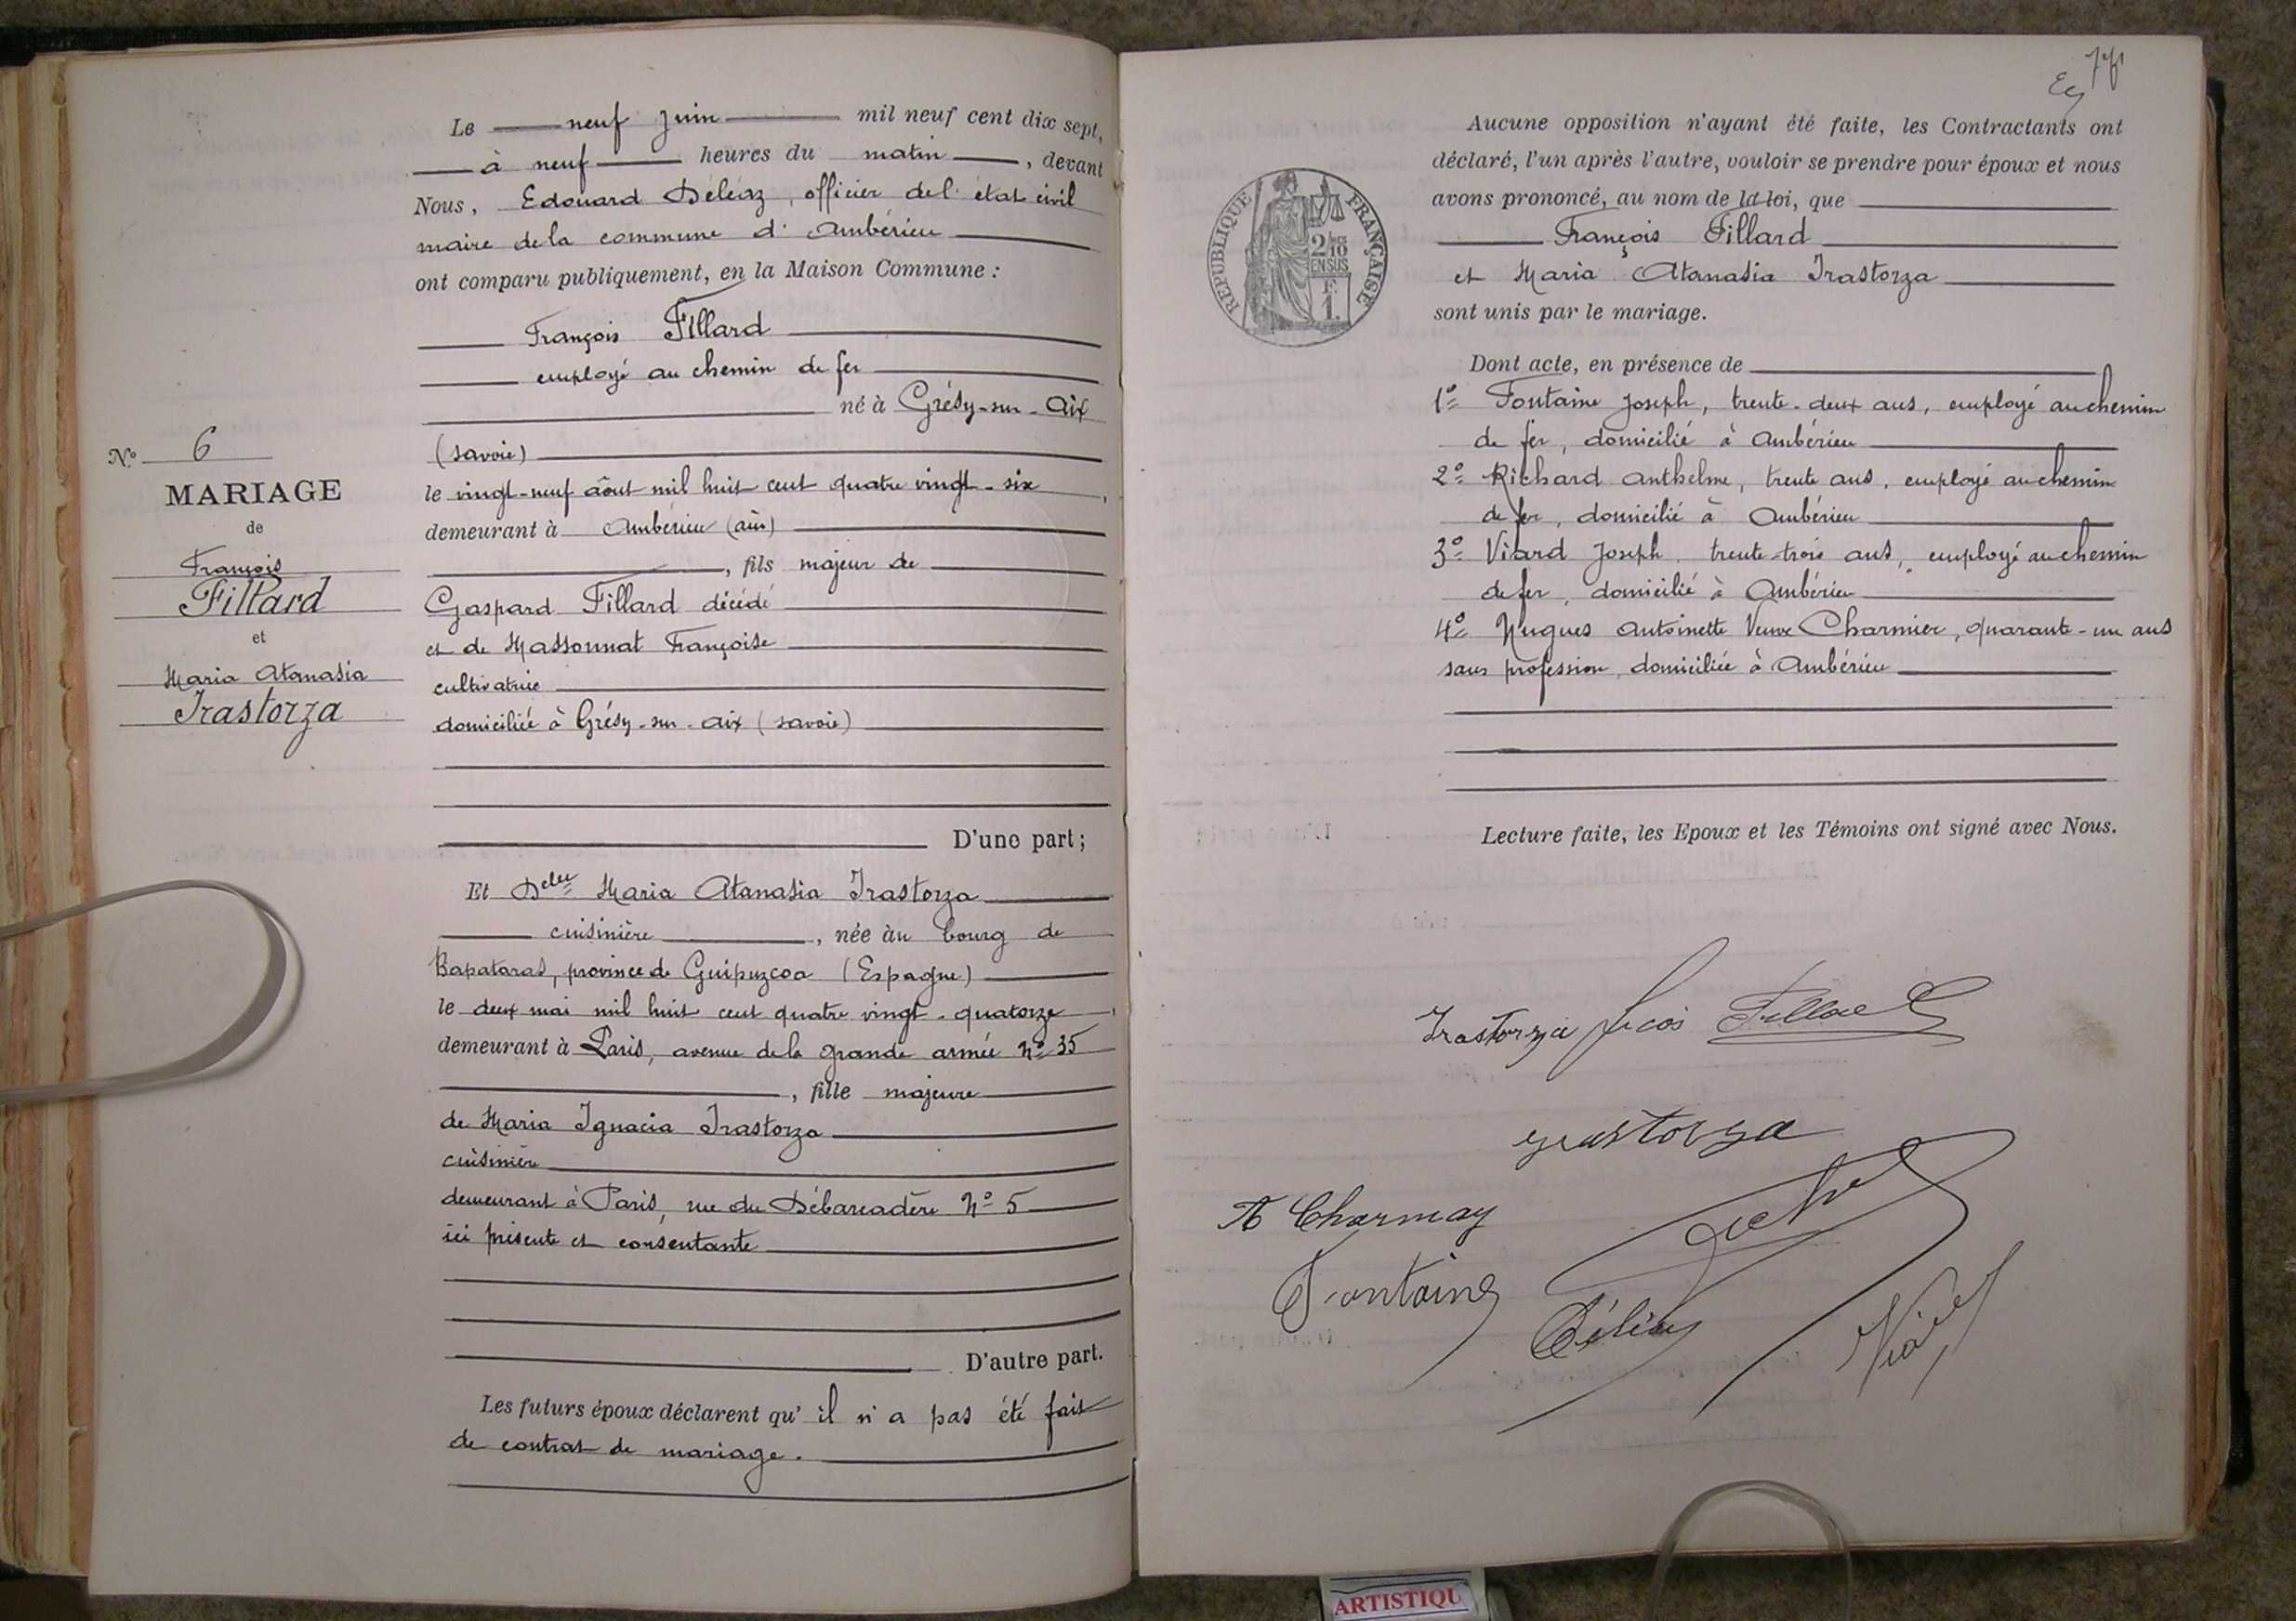 Le neuf Juin mil neuf cent dix sept,
à neuf heures du matin, devant
Nous, Edouard Déléaz, officier de l'état civil
maire de la commune d'Ambérieu
ont comparu publiquement, en la Maison Commune :
François Fillard
employé au chemin de fer
né à Grésy-sur-Aix
(Savoie)
le vingt-neuf aôut mil huit cent quatre vingt-six,
demeurant à Ambérieu (ain)
, fils majeur de
Gaspard Fillard décédé
et de Massonnat Françoise
cultivatrice
domiciliée à Grésy-sur-aix (Savoie)
D'une part;
N° 6
MARIAGE
de
François
Fillard
et
Maria Atanasia
Irastorza
Et Delle Maria Atanasia Irastorza
cuisinière, née àu bourg de
Bapataras, province de Guipuzcoa (Espagne)
le deux mai mil huit cent quatre vingt-quatorze,
demeurant à Paris, avenue de la grande armée N° 35
, fille majeure
de Maria Ignacia Irastorza
cuisinière
demeurant à Paris, rue du Débarcadère N° 5
ici présente et consentante
D'autre part.
Les futurs époux déclarent qu'il n'a pas été fait
de contrat de mariage.
Aucune opposition n'ayant été faite, les Contractants ont
déclaré, l'un après l'autre, vouloir se prendre pour époux et nous
avons prononcé, au nom de la loi, que
François Fillard
et Maria Atanasia Irastorza
sont unis par le mariage.
RÉPUBLIQUE FRANÇAISE
2/10
EN SUS
F.
1.
Dont acte, en présence de
1° Fontaine Joseph, trente-deux ans, employé au chemin
de fer, domicilié à Ambérieu
2° Richard Anthelme, trente ans, employé au chemin
de fer, domicilié à Ambérieu
3° Viard Joseph, trente-trois ans, employé au chemin
de fer, domicilié à Ambérieu
4° Hugues Antoinette Veuve Charmier, quarante-un ans
sans profession, domiciliée à Ambérieu
Lecture faite, les Epoux et les Témoins ont signé avec Nous.
Irastorza Fillard
yrastorza
A Charmay
Fontaine
Déléaz
Viard
ARTISTIQU